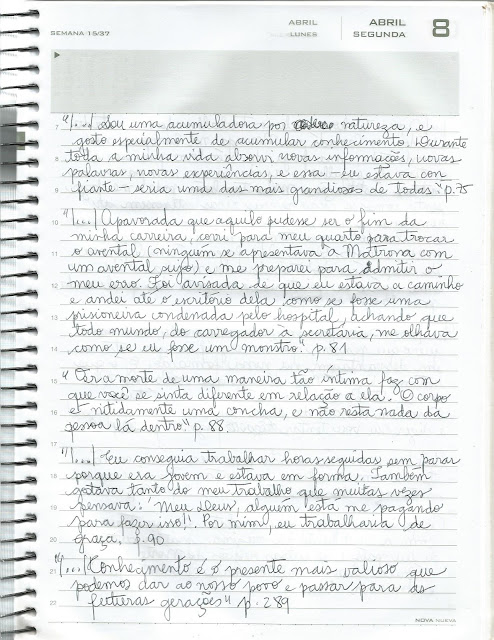 SEMANA 15/37
ABRIL
LUNES
ABRIL
SEGUNDA
8
"[...] Sou uma acumuladora por natureza, e
7
gosto especialmente de acumular conhecimento. Durante
8
toda a minha vida absorvi novas informações, novas
palavras, novas experiências, e essa - eu estava con
9
fiante - seria uma das mais grandiosas de todas." p.75
10
"[...] Apavorada que aquilo pudesse ser o fim da
minha carreira, corri para meu quarto para trocar
11
o avental (ninguém se apresentava à Matrona com
um avental sujo) e me preparei para admitir o
12
meu erro. Foi avisada de que eu estava a caminho
e andei até o escritório dela como se fosse uma
13
prisioneira condenada pelo hospital, achando que
todo mundo, do carregador à secretária, me olhava
14
como se eu fosse um monstro." p.81
15
" a morte de uma maneira tão íntima faz com
que você se sinta diferente em relação a ela. O corpo
16
é nitidamente uma concha, e não resta nada da
pessoa lá dentro." p.88
17
"[...] Eu conseguia trabalhar horas seguidas sem parar
18
porque era jovem e estava em forma. Também
gostava tanto do meu trabalho que muitas vezes
19
pensava: 'Meu Deus, alguém está me pagando
para fazer isso!'. Por mim, eu trabalharia de
20
graça. p.90
21
"[...] Conhecimento é o presente mais valioso que
podemos dar ao nosso povo e passar para as
22
futuras gerações" p.289
NOVA NUEVA